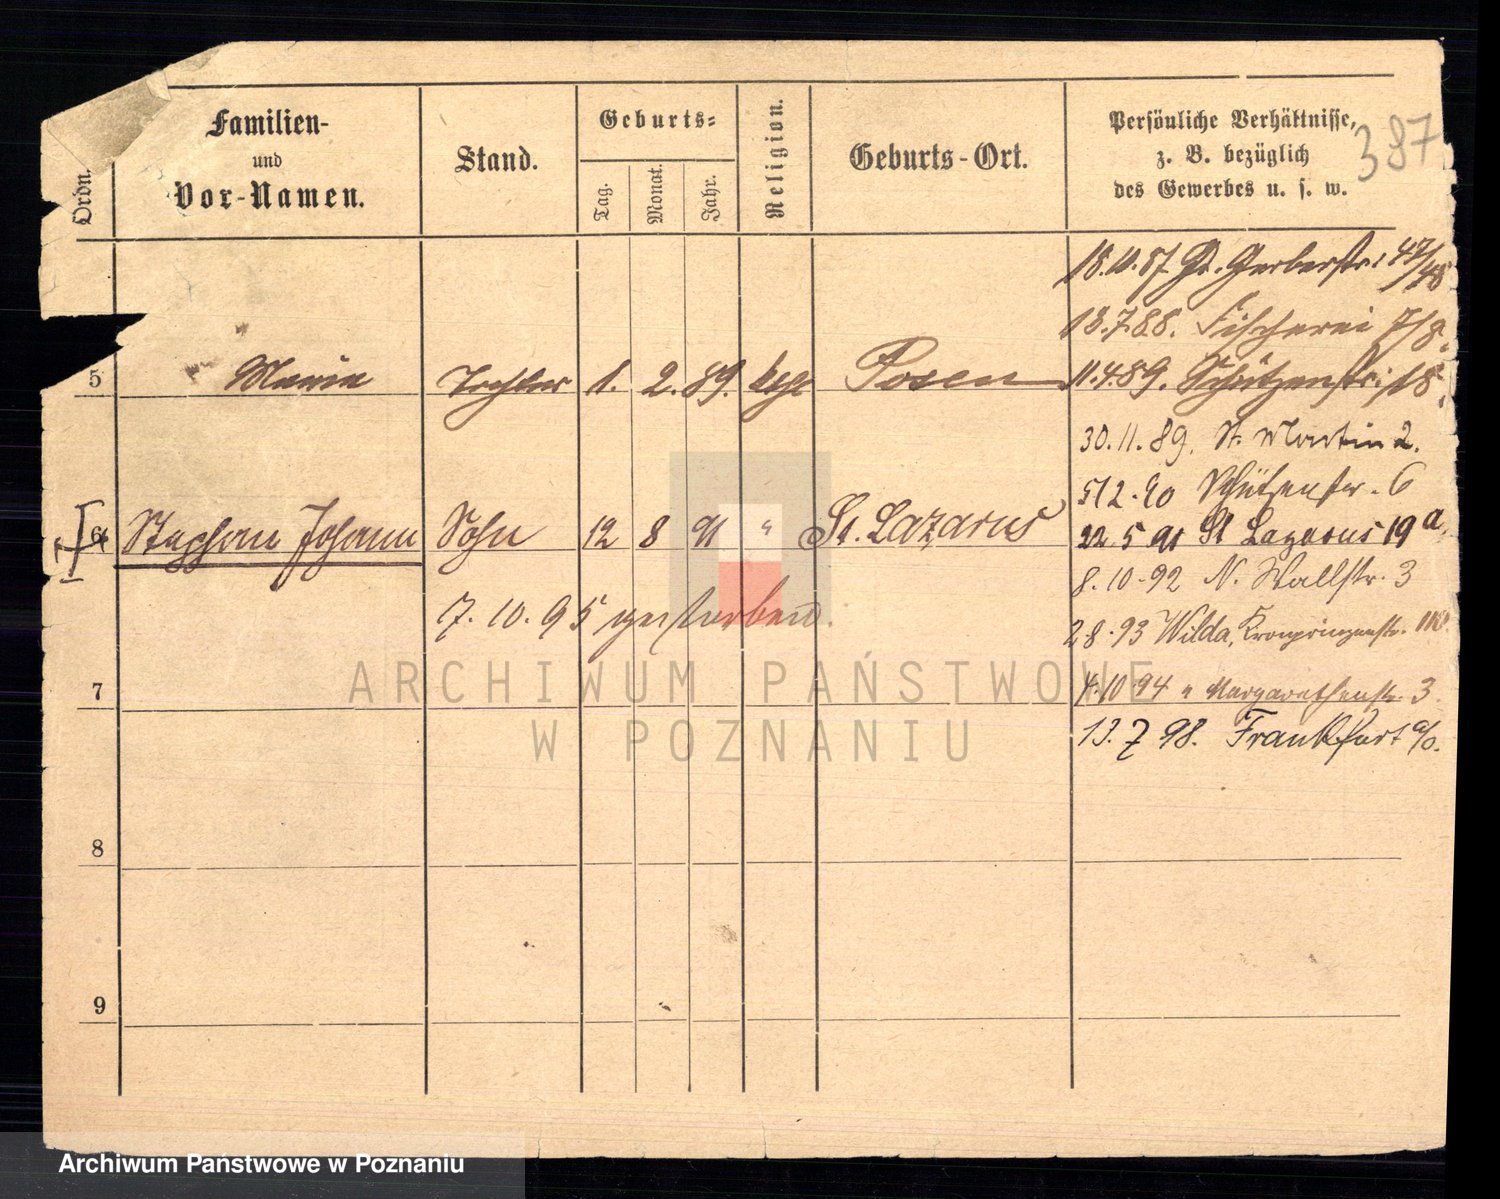 Ordn.
Familien-
und
Vor-Namen.
Stand.
Geburts-
Tag.
Monat.
Jahr.
Religion.
Geburts-Ort.
Persönliche Verhältnisse,
z. B. bezüglich
des Gewerbes u. s. w.
387
18.10.87 Gr. Gerberstr. 47/48
13.7.88. Fischerei 7/8.
5 Maria Tochter 1. 2. 89. kath Posen 11.4.89. Schützenstr. 18.
30.11.89. St. Martin 2.
5 12.90 Schützenstr. 6
6 Stephan Johann Sohn 12 8 91 " St. Lazarus 22.5 91 St Lazarus 19 a.
8.10.92 N. Wallstr. 3
7.10.95 gestorben.
2.8.93 Wilda, Kronprinzenstr.
7 4.10 94 " Margarethenstr 3
13.7 98. Frankfurt a/O.
8
9
ARCHIWUM PAŃSTWOWE
W POZNANIU
Archiwum Państwowe w Poznaniu